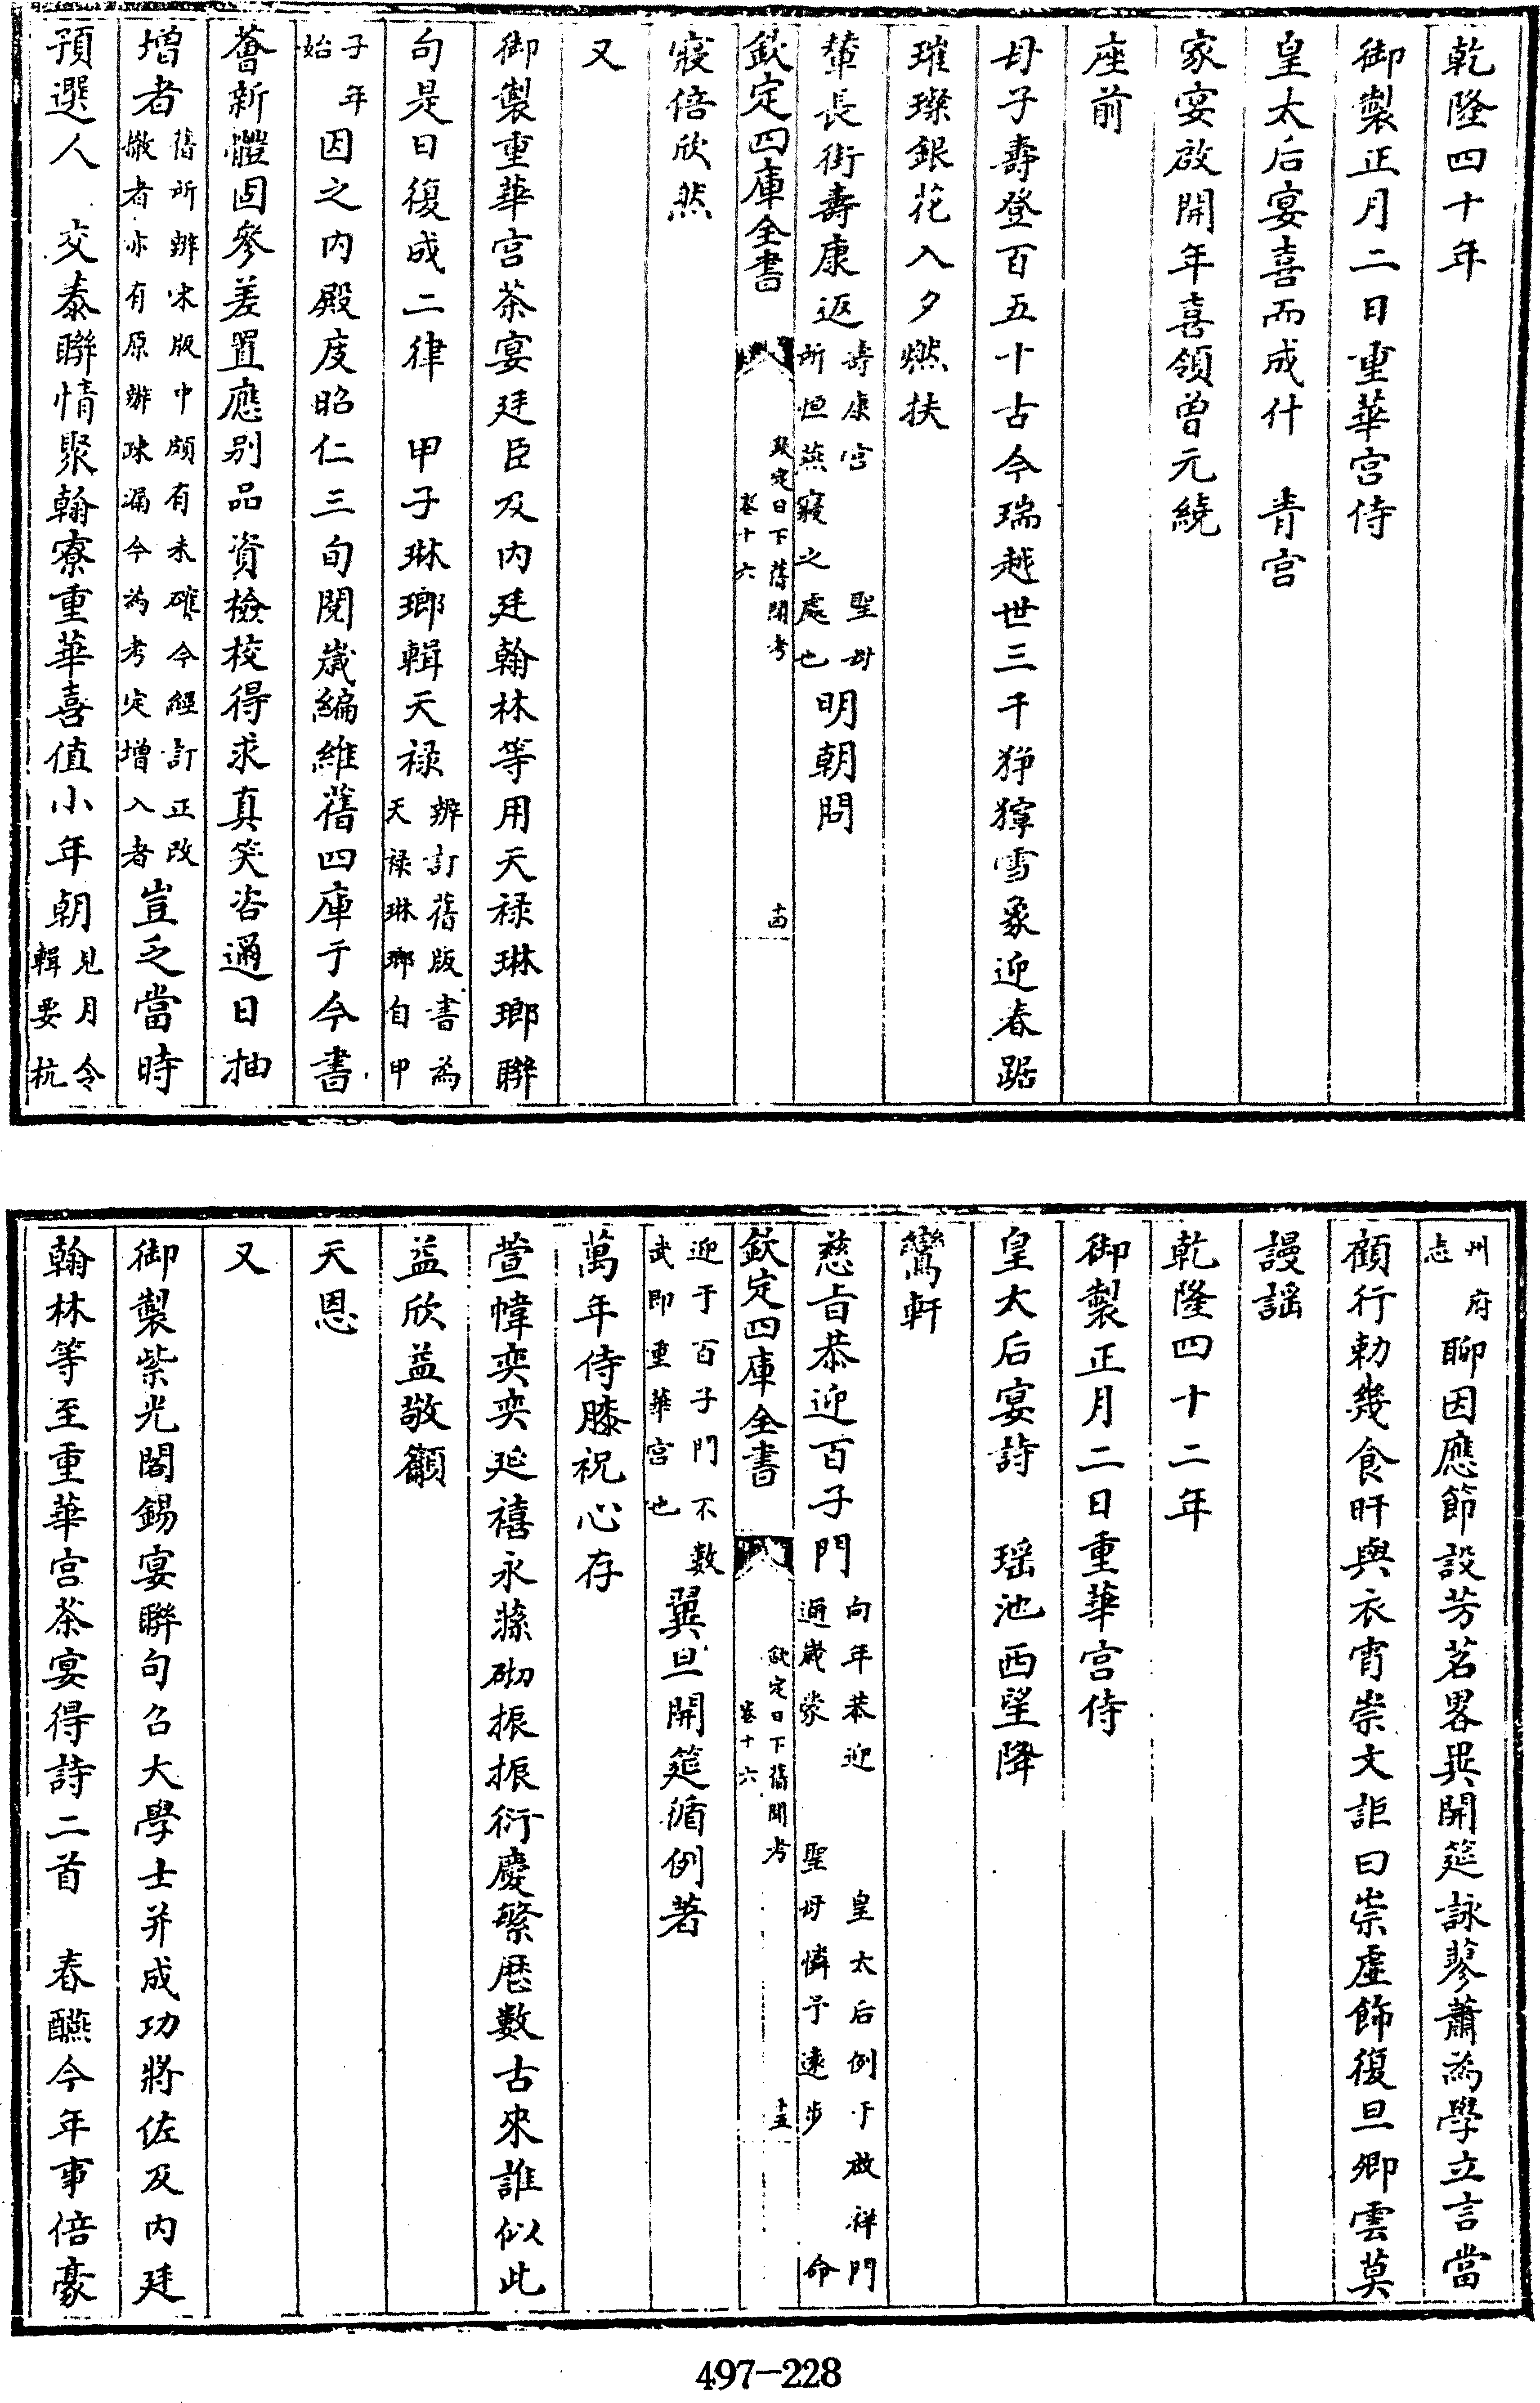 乾隆四十年
御製正月二日重華宮侍
皇太后宴喜而成什　青宮
家宴啟開年喜領曾元繞
座前
母子壽登百五十古今瑞越世三千猙獰雪象迎春踞
璀璨銀花入夕燃扶
輦長街壽康返壽康宮　聖母所恒燕寢之處也明朝問
欽定四庫全書　欽定日下舊聞考　卷十六　十四
寢倍欣然
又
御製重華宮茶宴廷臣及内廷翰林等用天祿琳瑯聯
句是日復成二律　甲子琳瑯輯天祿辦訂舊版書為天祿琳瑯自甲
子年始因之内殿庋昭仁三旬閱歲編維舊四庫于今書
薈新體固參差置應别品資檢校得求真笑咨邇日抽
增者舊所辦宋版中頗有未確今經訂正改撤者亦有原辦疎漏今為考定增入者豈乏當時
預選人　交泰聯情聚翰寮重華喜值小年朝見月令輯要杭
州府志聊因應節設芳茗畧異開筵詠蓼蕭為學立言當
顧行勅幾食旰與衣宵崇文詎曰崇虛飾復旦卿雲莫
謾謠
乾隆四十二年
御製正月二日重華宮侍
皇太后宴詩　瑶池西望降
鸞軒
慈㫖恭迎百子門向年恭迎　皇太后例于啟祥門邇歲蒙　聖母憐予遠步　命
欽定四庫全書　欽定日下舊聞考　卷十六　十五
迎于百子門不數武即重華宮也翼旦開筵循例著
萬年侍膝祝心存
萱幃奕奕延禧永蓀砌振振衍慶繁歷數古來誰似此
益欣益敬籲
天恩
又
御製紫光閣錫宴聯句召大學士并成功將佐及内廷
翰林等至重華宮茶宴得詩二首　春醼今年事倍豪
497-228